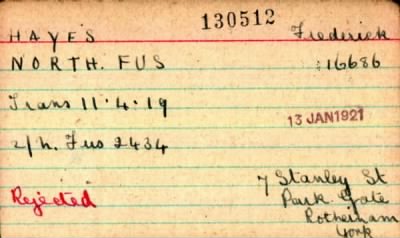 130512
HAYES Frederick
NORTH. FUS 16686
Trans 11.4.19
13 JAN 1921
2/N. Fus 2434
7 Stanley St
Rejected Park Gate
Rotherham
York